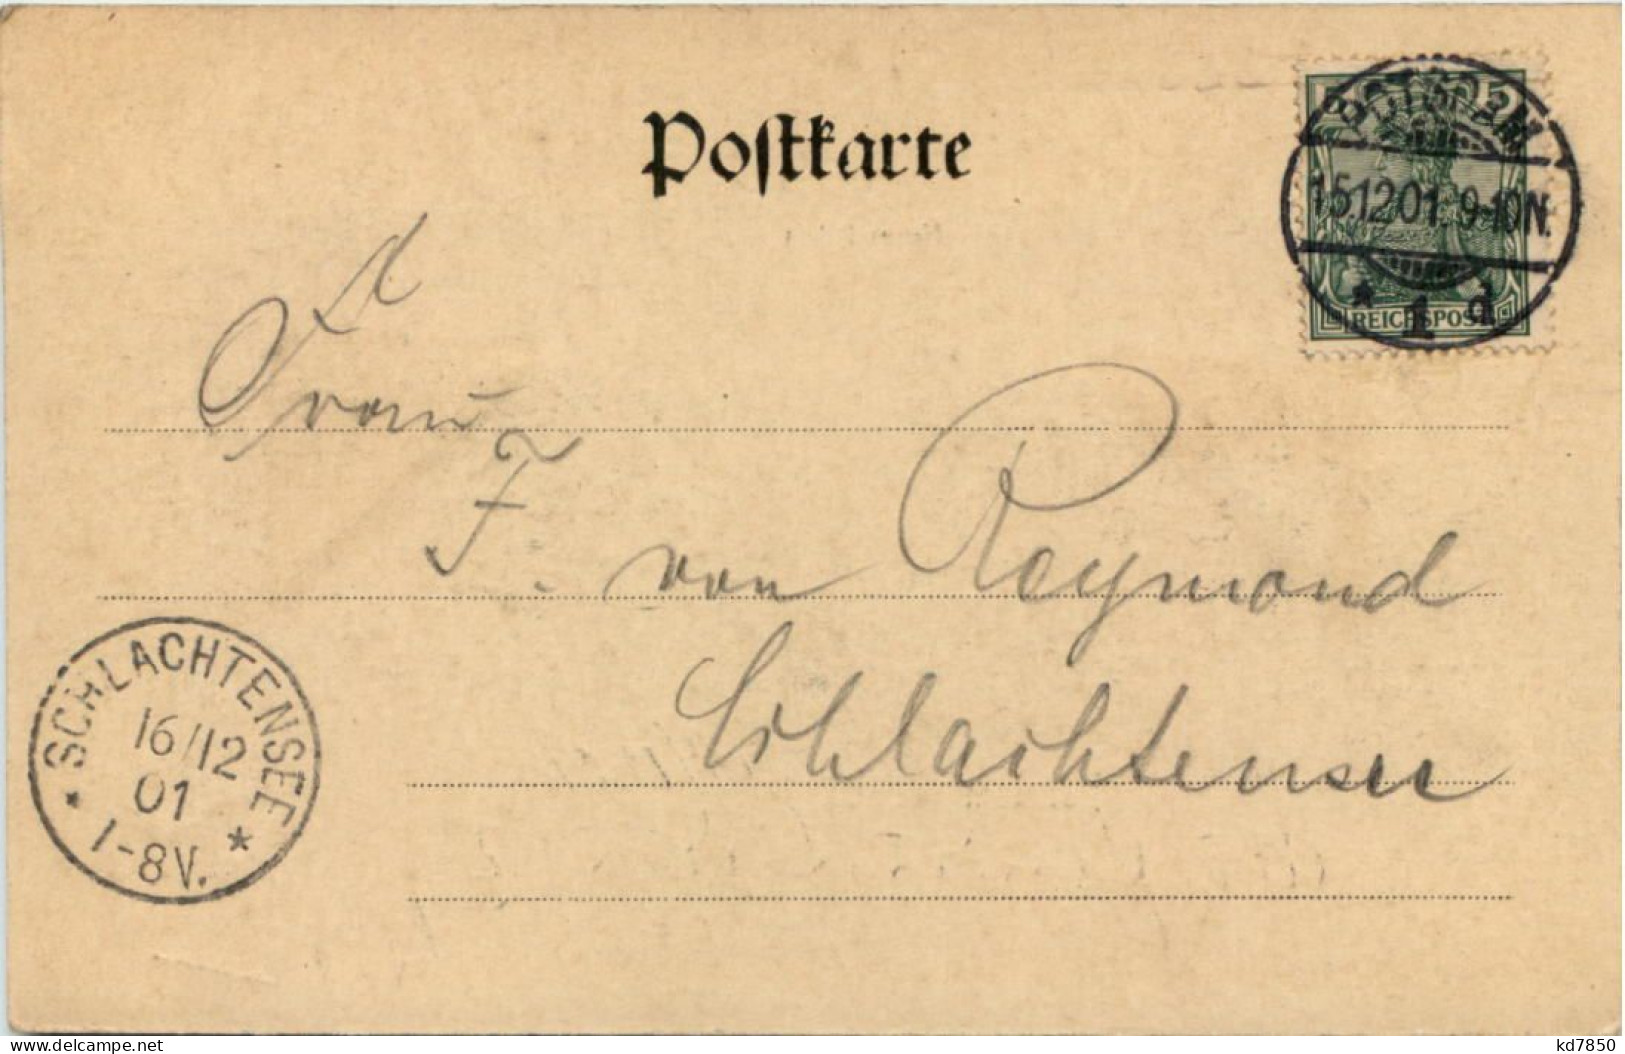 Postkarte
POTSDAM
15.12.01. 9-10N.
* 1. d.
REICHSPOST
Frau
F. von Reymond
Schlachtensee
SCHLACHTENSEE
16/12
01
* 1-8V. *
kd7850